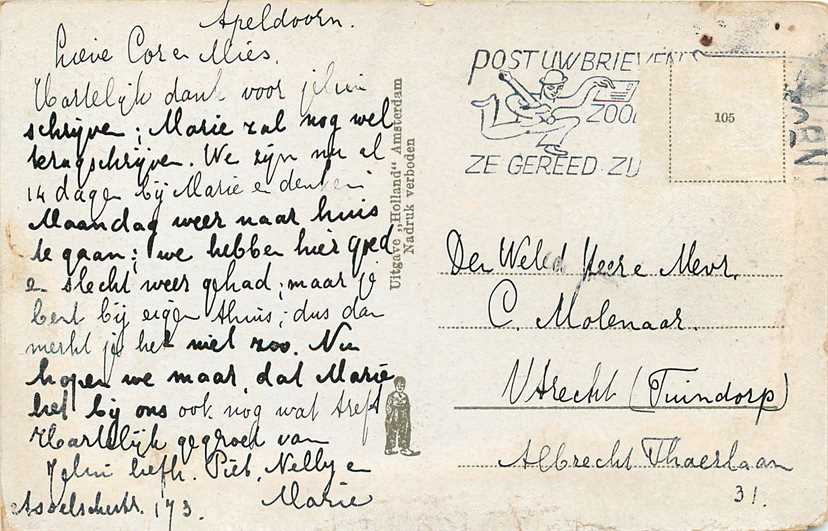 Apeldoorn.
Lieve Cor en Mies.
Hartelijk dank voor jelui
schrijven; Marie zal nog wel
terugschrijven. We zijn nu al
14 dagen bij Marie en denken
Maandag weer naar huis
te gaan; we hebben hier goed
en slecht weer gehad; maar je
bent bij eigen thuis; dus dan
merkt je het niet zoo. Nu
hopen we maar, dat Marie
het bij ons ook nog wat treft
Hartelijk gegroet van
Jelui liefh. Piet, Nelly en
Marie
Asselschestr. 173.
Uitgave „Holland" Amsterdam
Nadruk verboden
POST UW BRIEVEN
ZOO
ZE GEREED ZIJ
105
Den WelEd Heer e Mevr.
C. Molenaar.
Utrecht (Tuindorp)
Albrecht Thaerlaan
31.